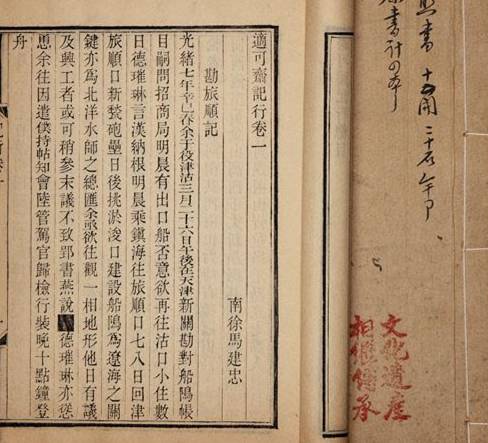 文化遺産
相繼傳承
適可齋記行卷一
南徐馬建忠
勘旅順記
光緒七年辛巳春余于役津沽三月二十六日午後在天津新關勘對船隖帳
目嗣問招商局明晨有出口船否意欲再往沽口小住數
日德璀琳言漢納根明晨乘鎮海往旅順口七八日回津
旅順口新甃砲壘日後挑淤浚口建設船隖爲遼海之關
鍵亦爲北洋水師之總匯余亟欲往觀一相地形他日有議
及興工者或可稍參末議不致郢書燕說德璀琳亦慫
恿余往因遣僕持帖知會陸管駕官歸檢行裝晚十點鐘登
舟